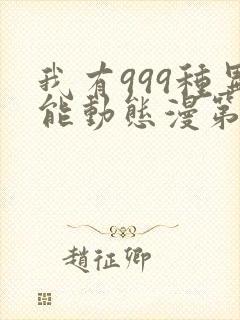 我有999種異
能動態漫第
趙征卿